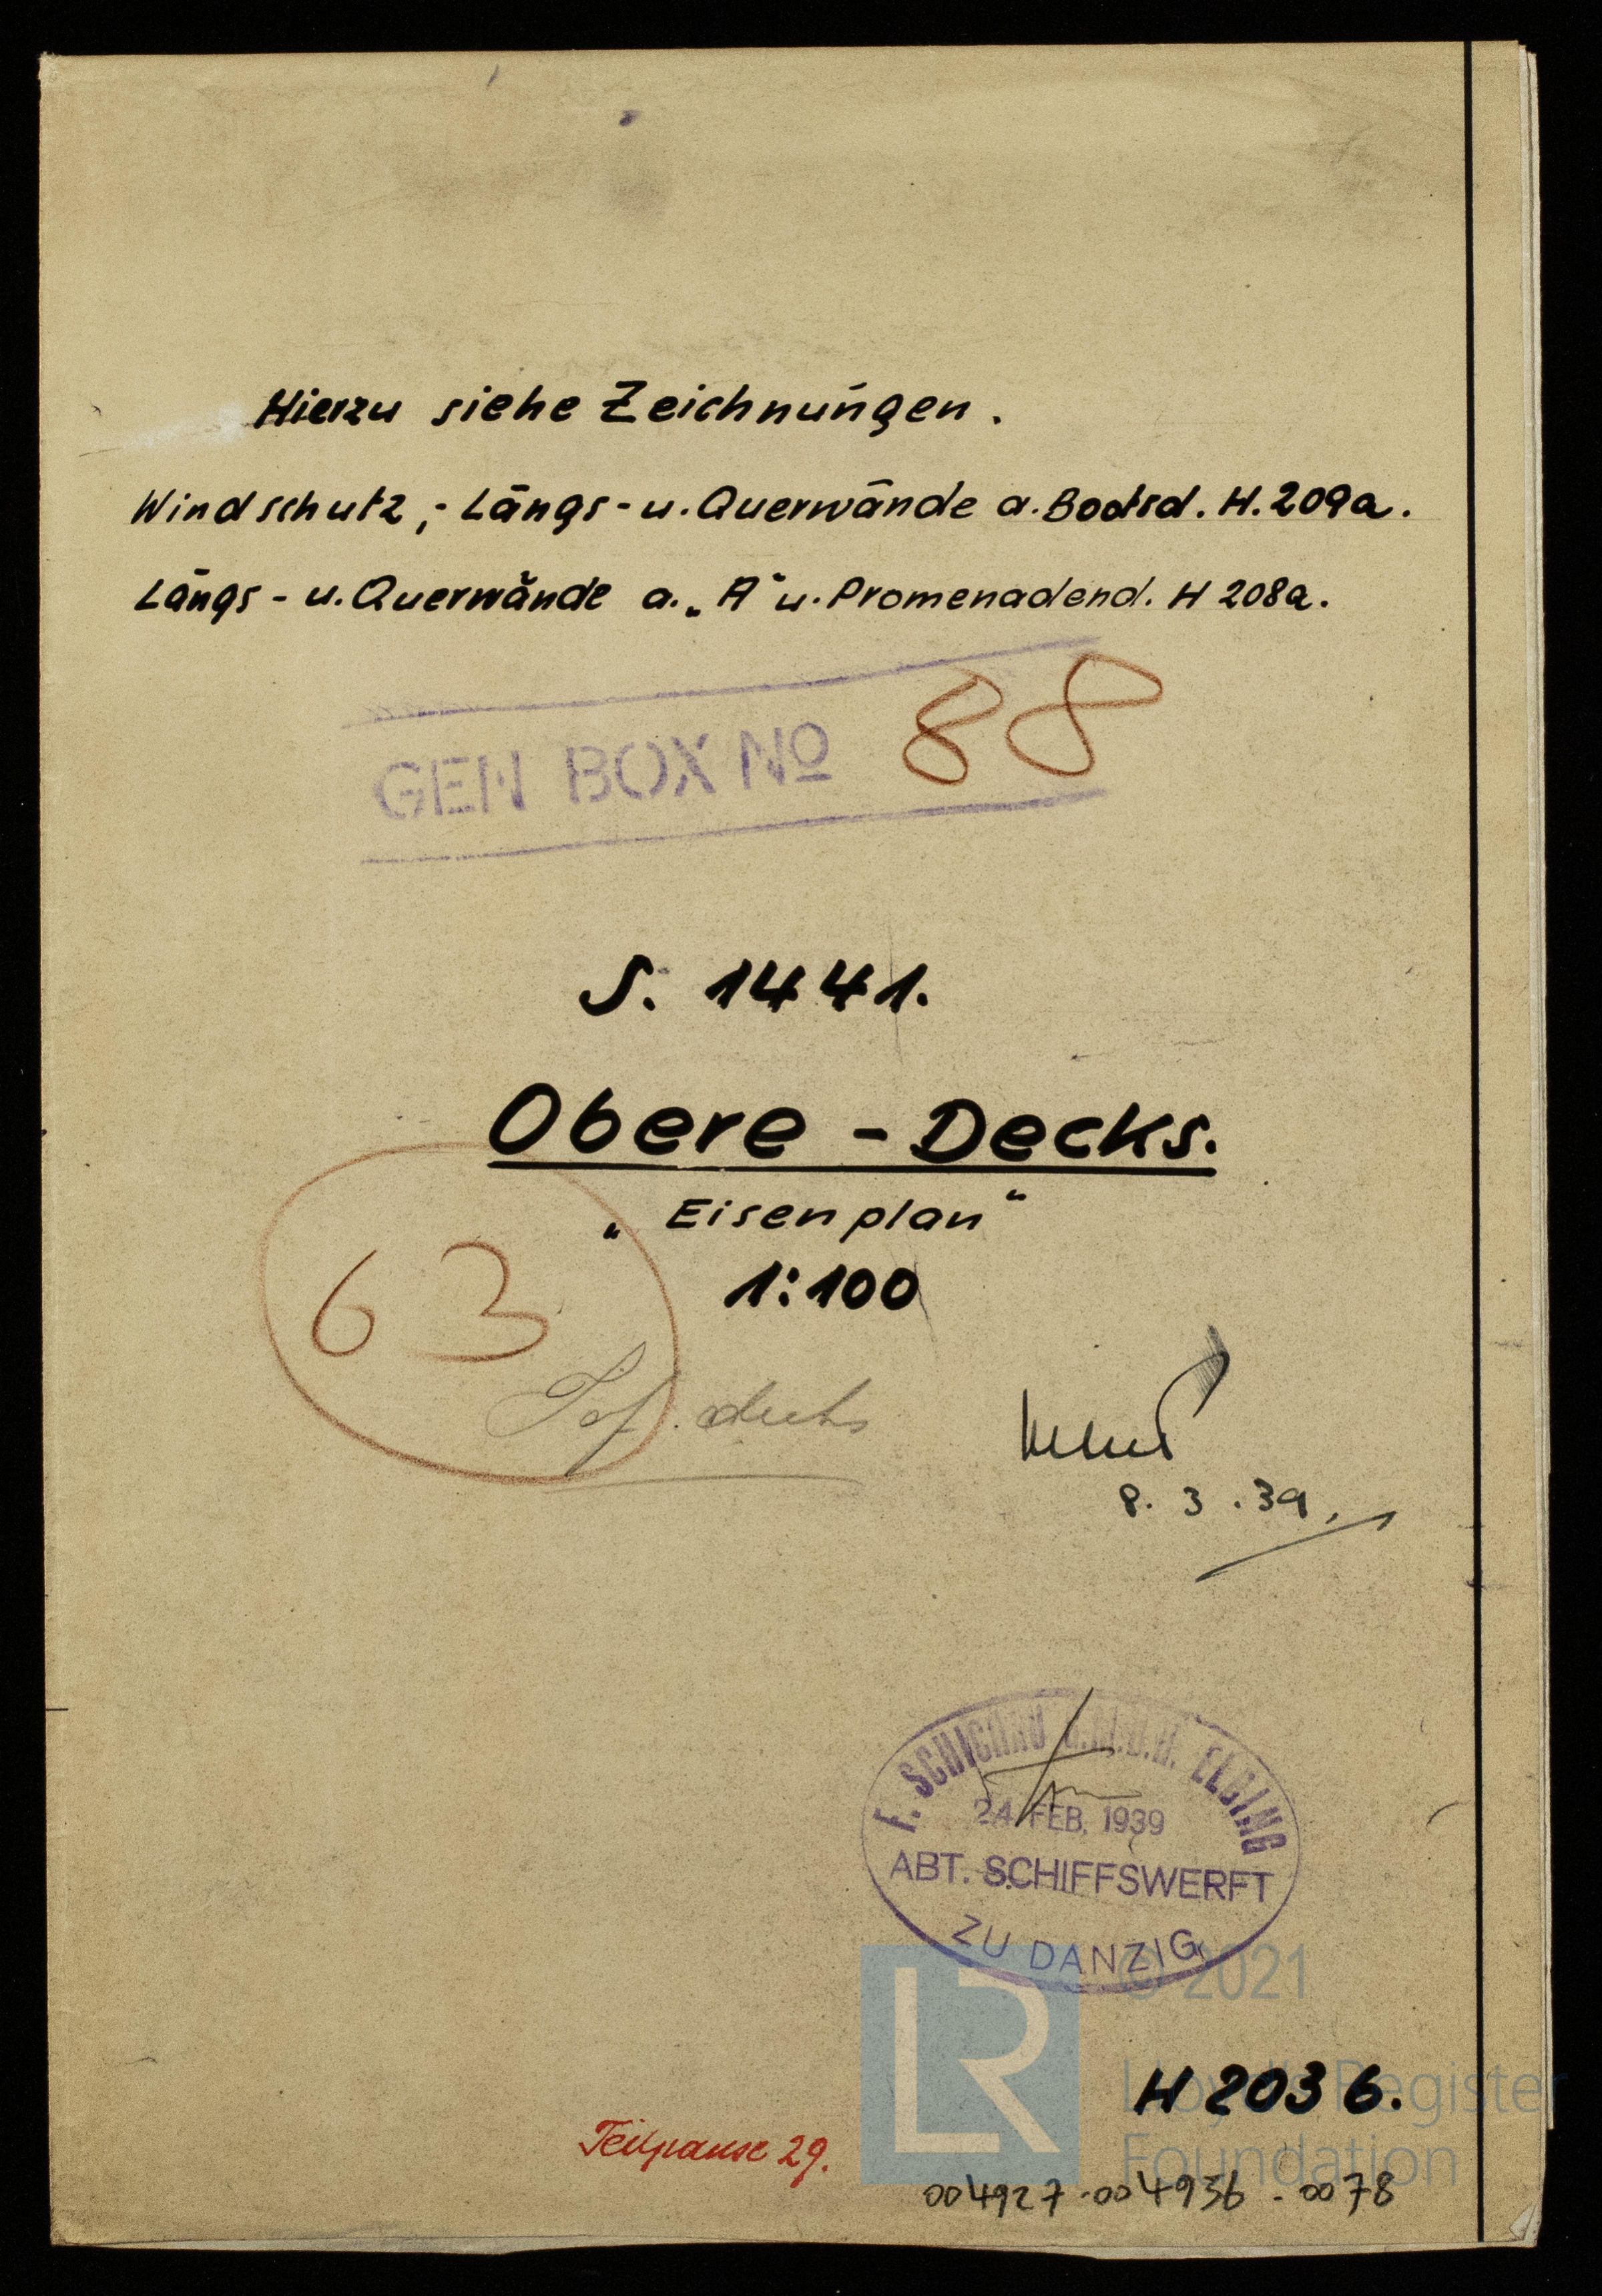 Hierzu siehe Zeichnungen.
Windschutz,- Längs- u. Querwände a. Bootsd. H. 209a.
Längs- u. Querwände a. „A“ u. Promenadend. H 208a.
GEN BOX Nº 88
S. 1441.
Obere - Decks.
„Eisenplan“
1:100
63
Top. decks
8. 3. 39.
F. SCHICHAU G.M.B.H. ELBING
24. FEB. 1939
ABT. SCHIFFSWERFT
ZU DANZIG
© 2021
LR
Lloyd's Register
Foundation
H 2036.
Teilpause 29.
004927-004936-0078